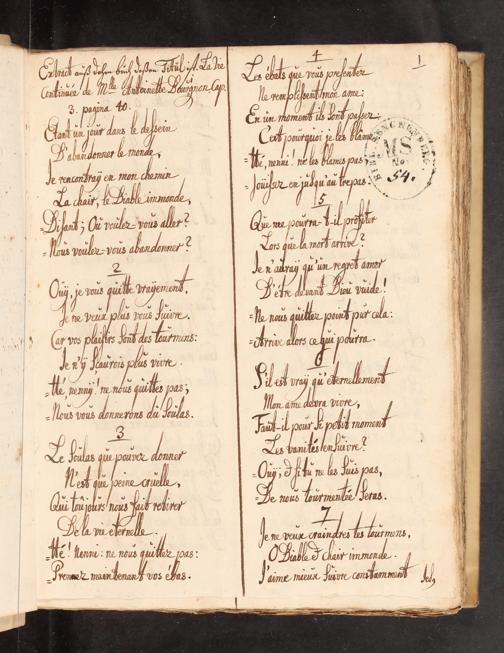 Extract auß dehm buch deßen Titul ist. La Vie
Continuée de Mlle Antoinette Bourignon Cap.
3. pagina 40.
Etant un jour dans le dessein
D'abandonner le monde,
Je rencontray en mon chemin
La chair, le Diable immonde,
=Disant; Où voulez-vous aller?
=Nous voulez-vous abandonner?
2
Oüy, je vous quitte vrayement,
Je ne veux plus vous suivre.
Car vos plaisirs sont des tourmens:
Je n'y sçaurois plus vivre.
=Hé, nenny! ne nous quittes pas;
=Nous vous donnerons du Soulas.
3
Le Soulas que pouvez donner
N'est que peine cruelle,
Qui toujours nous fait retirer
De la vie eternelle.
Hé! Nenni: ne nous quittez pas:
=Prennez maintenant vos ébas.
4
Les ébats que vous presentez
Ne remplissent mon ame:
En un moment ils sont passez.
C'est pourquoi je les blâme
=Hé, nenni! ne les blames pas
=Joüisse
z en jusqu'au trepas.
5
Que me pourra-t-il profiter
Lors que la mort arrive?
Je n'auray qu'un regret amer
D'être devant Dieu vuide!
=Ne nous quittez point pur cela:
=Arrive alors ce qui pourra.
6
S'il est vray qu'eternellement
Mon ame devra vivre,
Faut-il pour si petit moment
Les vanités ensuivre?
=Oüy; & si tu ne les suis pas,
=De nous tourmentée seras.
7
Je ne veux craindre tes tourmens,
O Diable & chair immonde.
J'aime mieux suivre constamment
1
MS
No
54.